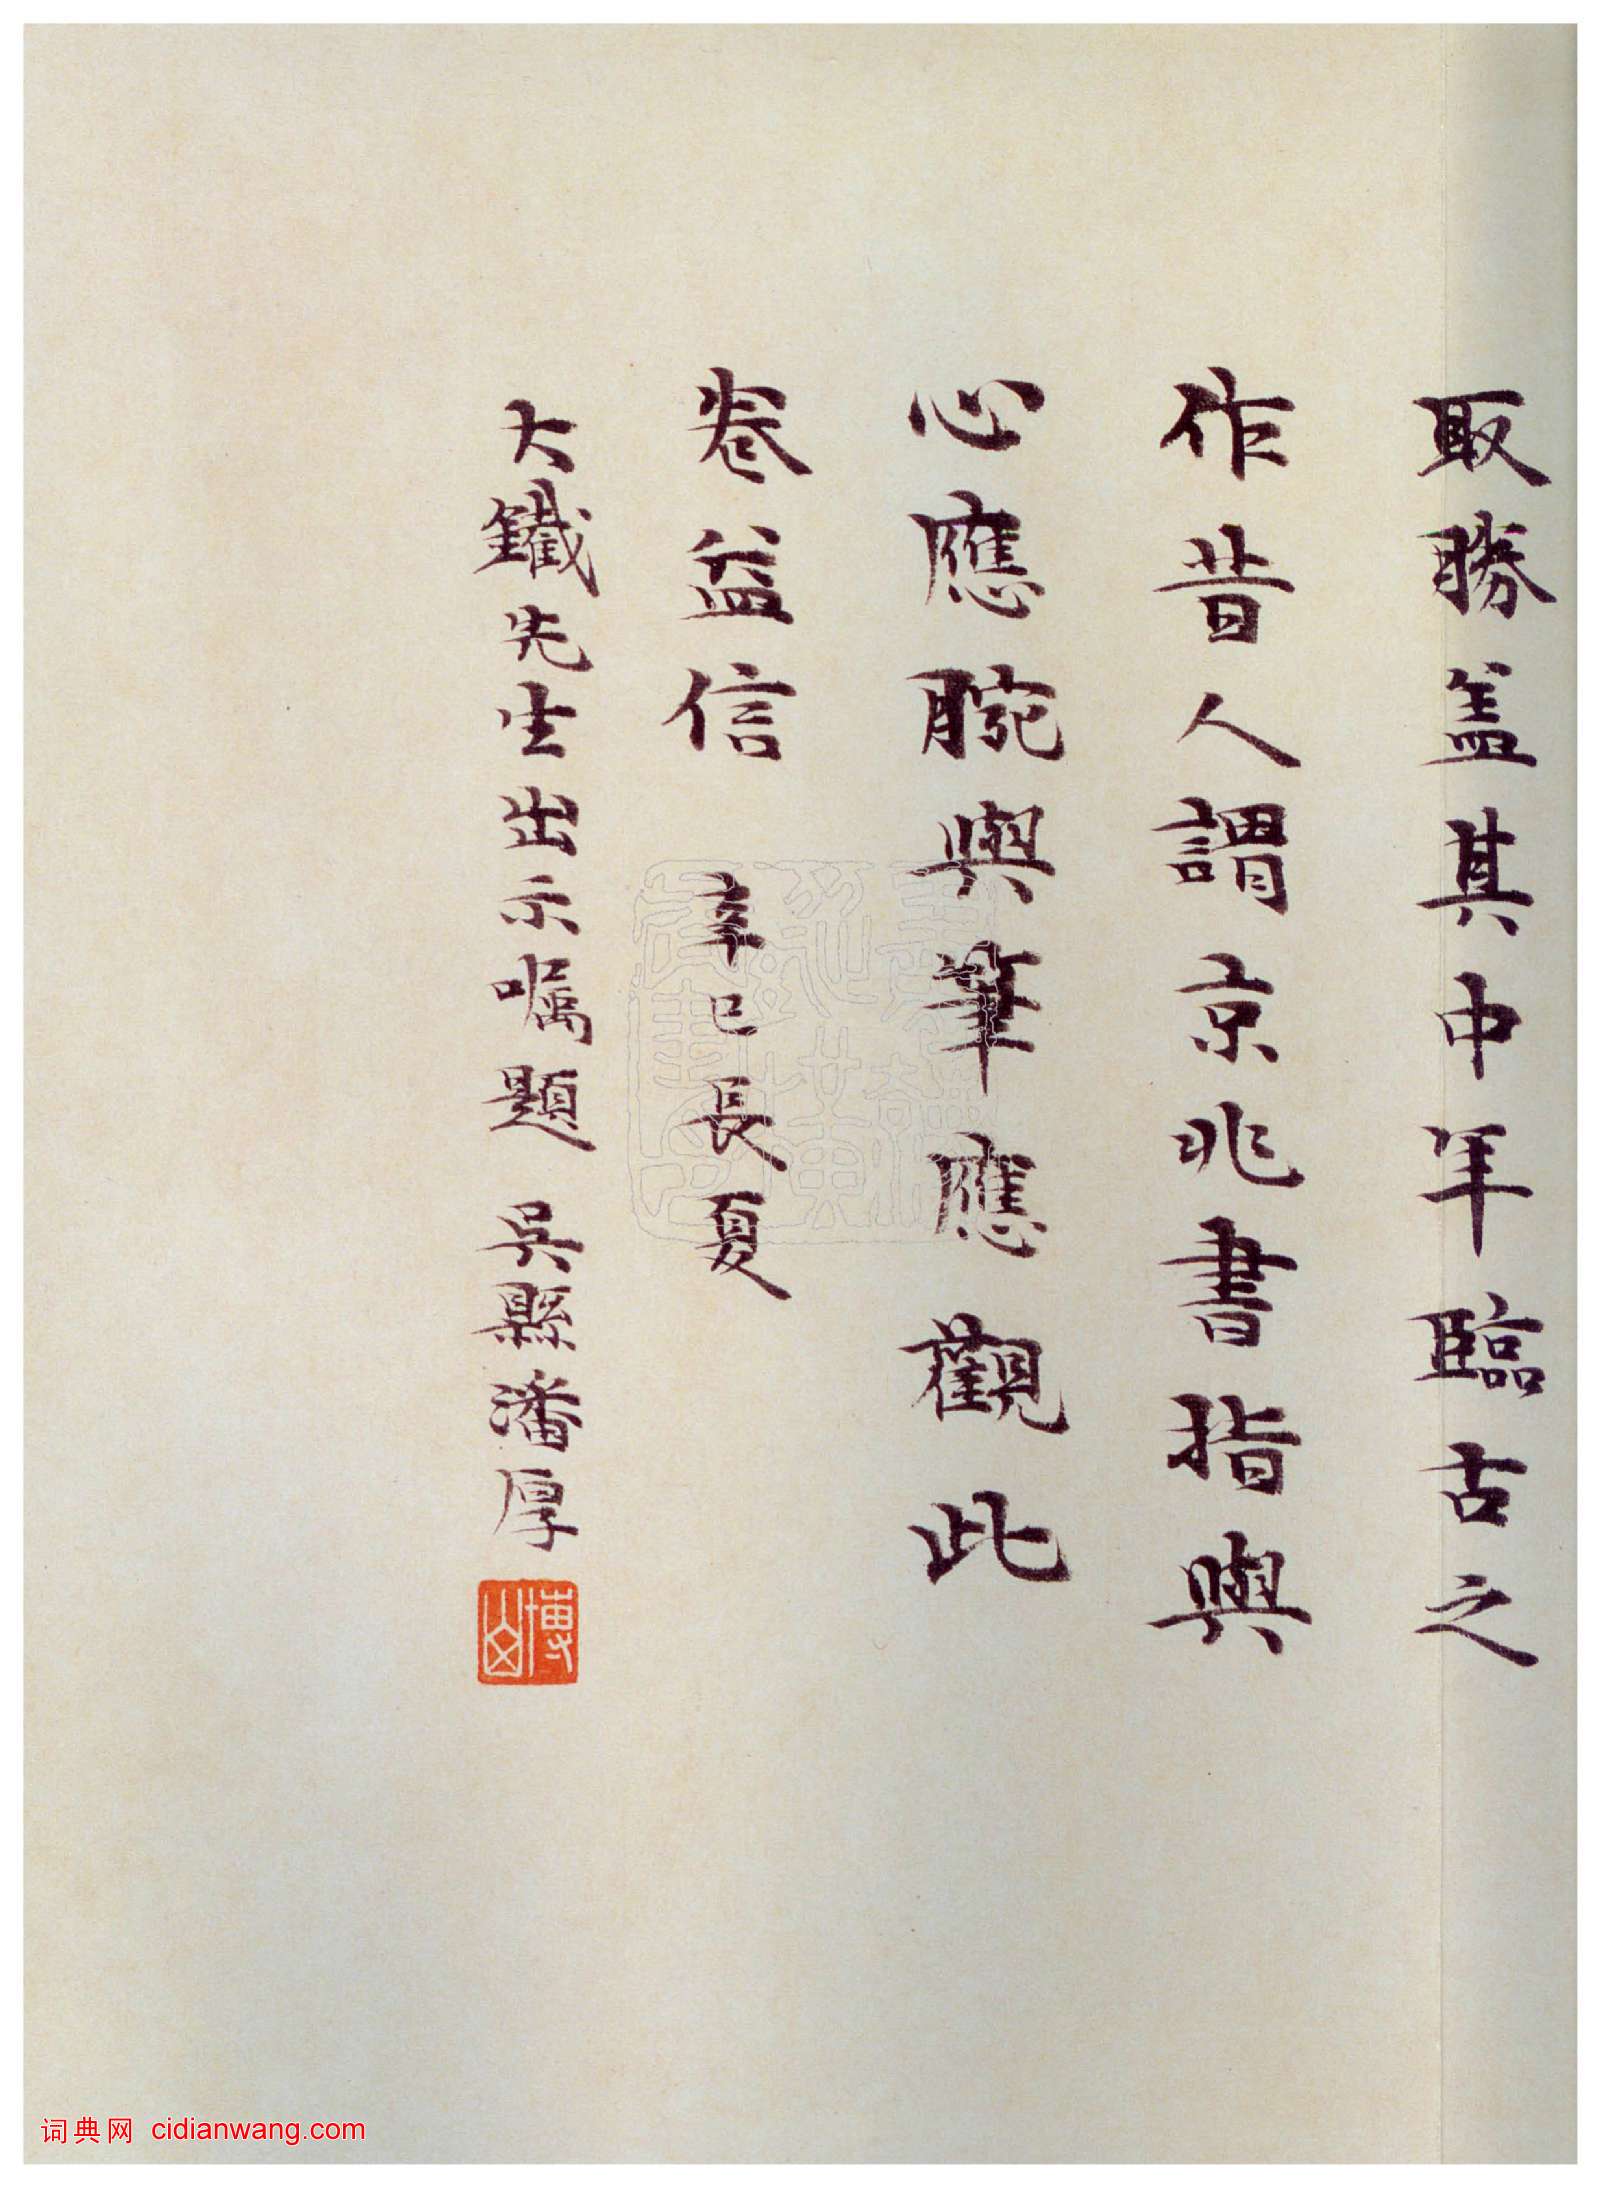 取勝盖其中年臨古之
作昔人謂京兆書指與
心應腕與筆應觀此
卷益信 辛巳長夏
大鐵先生出示嘱題 吳縣潘厚
博山
词典网 cidianwang.com